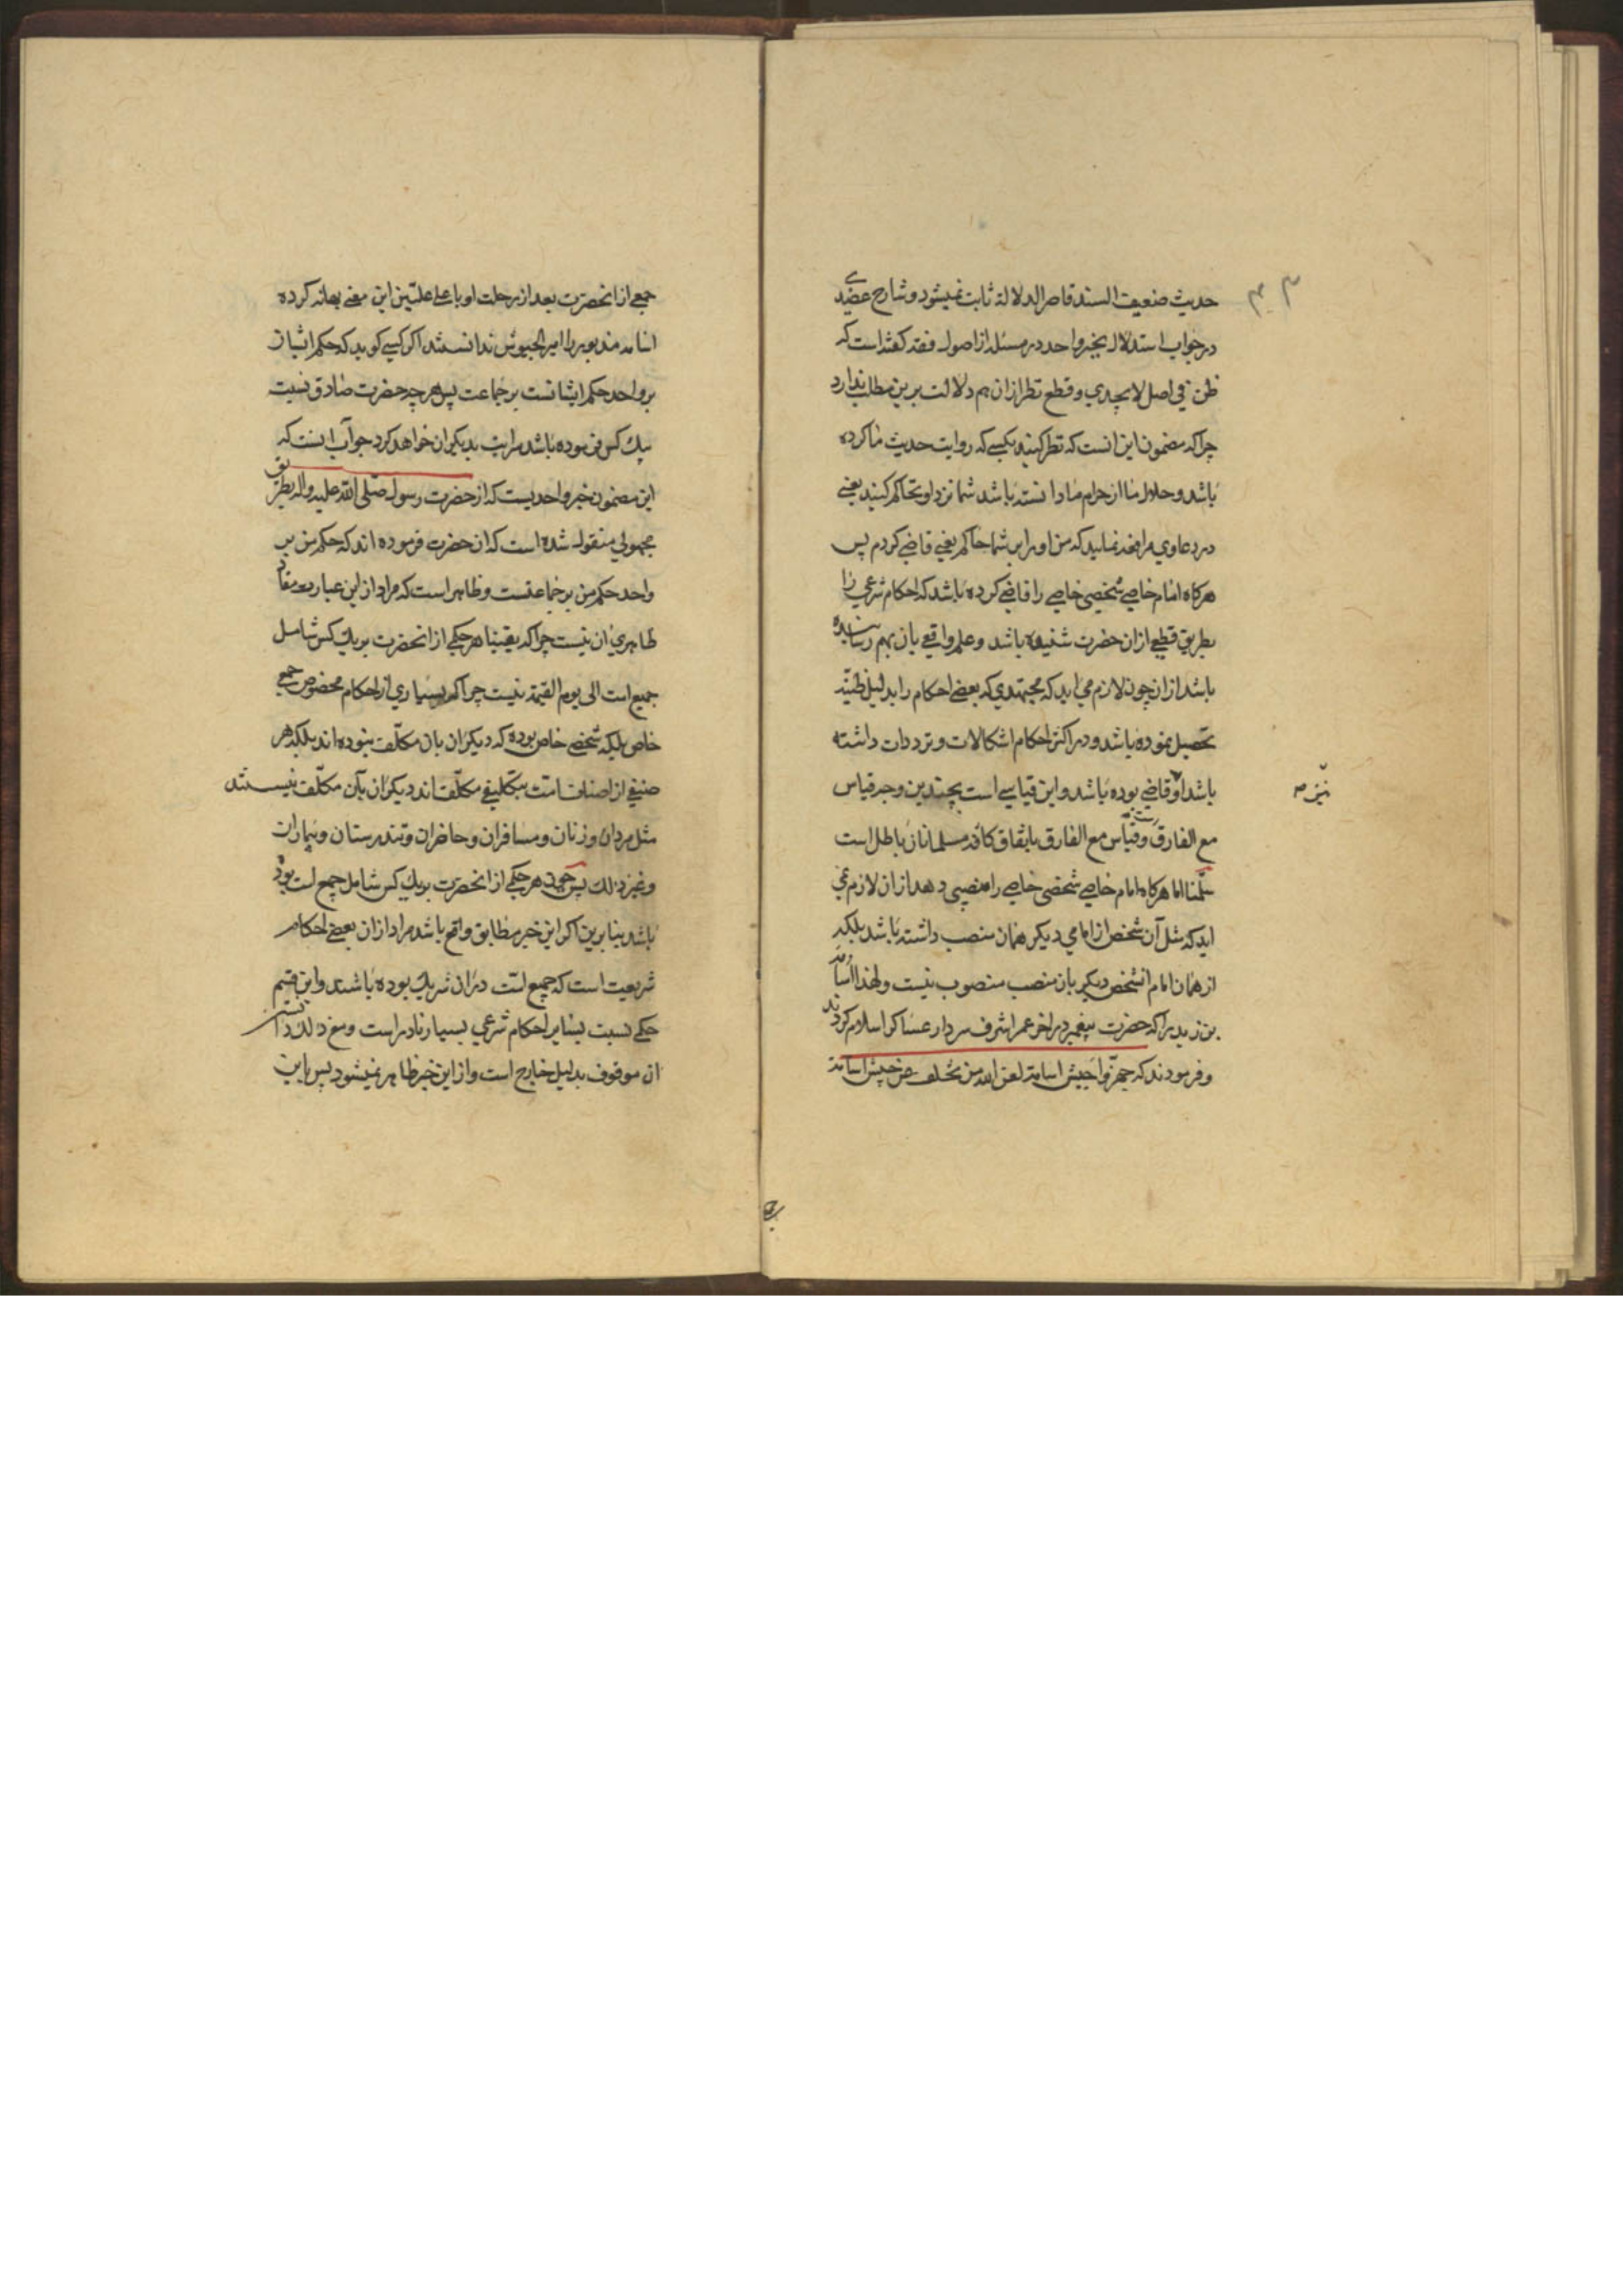 حدیث ضعیف السند قاصر الدلالة ثابت نمیشود و شارح عضدی
در جواب استدلال بخبر واحد در مسئله از اصول فقه کفته است که
ظن فی اصل لا یجدی و قطع نظر از ان هم دلالت برین مطلب ندارد
چرا که مضمون این انست که نظر کنید بکسی که روایت حدیث ما کرده
باشد و حلال ما از حرام ما دانسته باشد شما نزد او تحاکم کنید یعنی
در دعاوی مرافعه نمایید که من او را بر شما حاکم یعنی قاضی کردم پس
هرکاه امام خاصی شخصی خاصی را قاضی کرده باشد که احکام شرعی را
بطریق قطعی از ان حضرت شنیده باشد و علم واقعی بان بهم رسانیده
باشد از ان چون لازم می اید که مجتهدی که بعضی احکام را بدلیل ظنیه
تحصیل نموده باشد و در اکثر احکام اشکالات و ترددات داشته
باشد او قاضی بوده باشد و این قیاسی است بچندین وجه قیاس
نیز صح
مع الفارق است و قیاس مع الفارق باتفاق کافه مسلمانان باطل است
سلّمنا اما هرکاه امام خاصی شخصی خاصی را منصبی دهد از ان لازم نمی
اید که مثل آن شخص از امامی دیکر همان منصب داشته باشد بلکه
از همان امام انشخص دیکر بان منصب منصوب نیست و لهذا اسامه
بن زید را که حضرت پیغمبر در اخر عمر اشرف سردار عساکر اسلام کردند
و فرمودند که جهزّوا جیش اسامة لعن الله من تخلف عن جیش اسامة
جمعی از انحضرت بعد از رحلت او باعلی علیّین این معنی بهانه کرده
اسامه مذبور را امیر الجیوش ندانستند اکر کسی کوید که حکم ایشان
بر واحد حکم ایشانست بر جماعت پس هر چه حضرت صادق نسبت
بیک کس فرموده باشد سرایت بدیکران خواهد کرد جواب انست که
این مضمون خبر واحدیست که از حضرت رسول صلّی الله علیه واله بطریق
مجهولی منقول شده است که ان حضرت فرموده اند که حکم من بر
واحد حکم من بر جماعتست و ظاهر است که مراد از این عبارت مفاد
ظاهری ان نیست چرا که یقینا هر حکمی از انحضرت بر یک کس شامل
جمیع امت الی یوم القیمة نیست چرا که بسیاری از احکام مخصوص جمعی
خاص بلکه شخصی خاص بوده که دیکران بان مکلّف نبوده اند بلکه هر
صنفی از اصناف امت بتکلیفی مکلّف اند دیکران بآن مکلّف نیستند
مثل مردان و زنان و مسافران و حاضران و تندرستان و بیماران
و غیر ذلک پس چون هر حکمی از انحضرت بر یک کس شامل جمیع امت نبوده
باشد بنا برین اکر این خبر مطابق واقع باشد مراد از ان بعضی احکام
شریعت است که جمیع امت در ان شریک بوده باشند و این قسم
حکمی نسبت بسایر احکام شرعی بسیار نادر است و مع ذلک دانستن
ان موقوف بدلیل خارج است و از این خبر ظاهر نمیشود پس باین